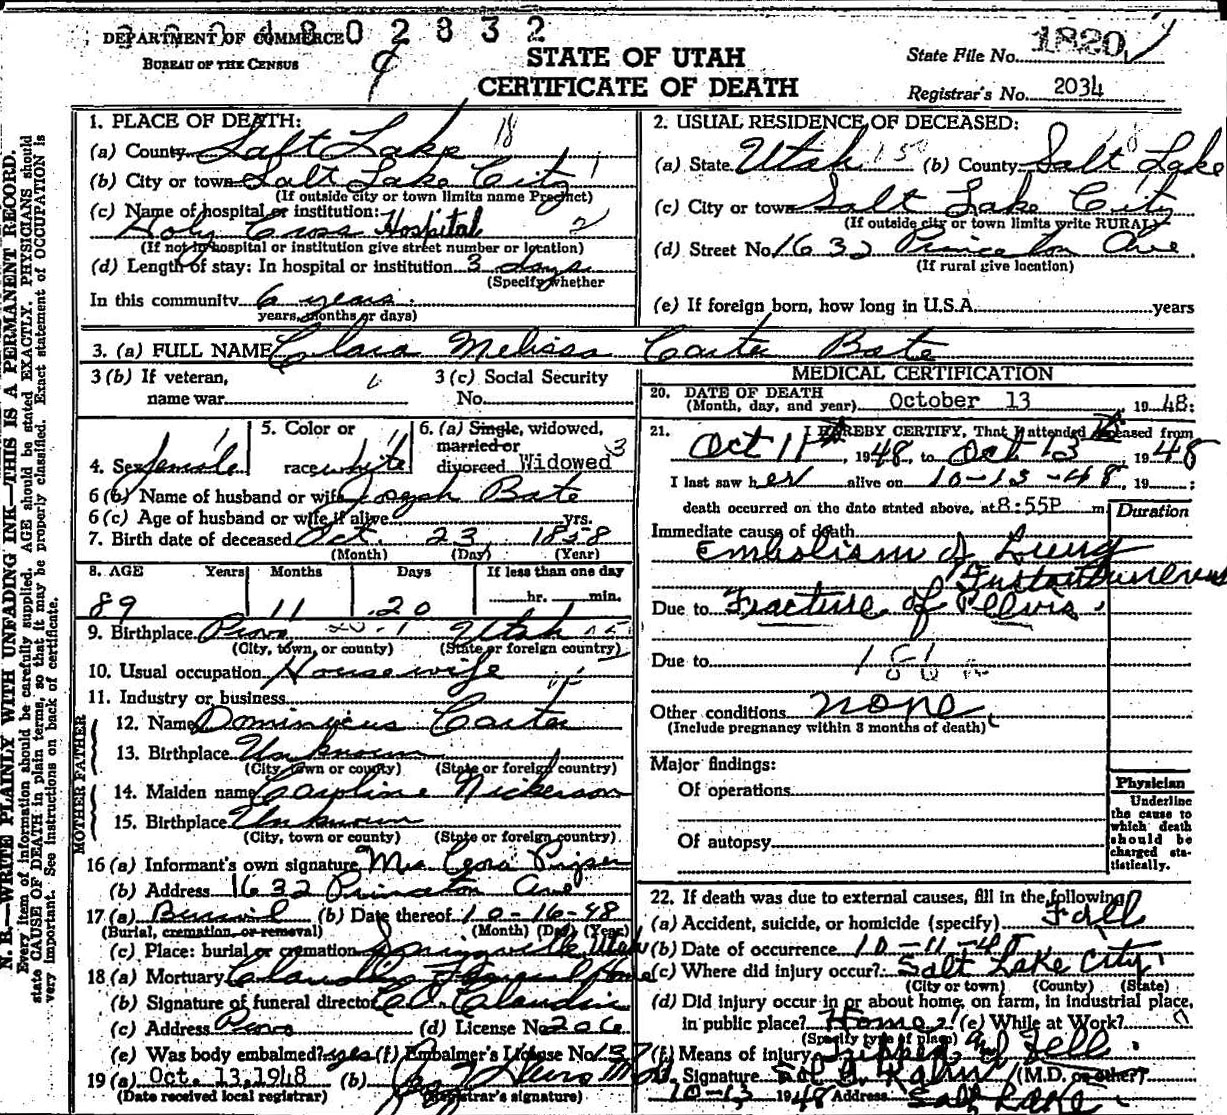 DEPARTMENT OF COMMERCE
BUREAU OF THE CENSUS
STATE OF UTAH
CERTIFICATE OF DEATH
State File No. 1820
Registrar's No. 2034
N. B.—WRITE PLAINLY WITH UNFADING INK—THIS IS A PERMANENT RECORD.
Every item of information should be carefully supplied. AGE should be stated EXACTLY. PHYSICIANS should
state CAUSE OF DEATH in plain terms, so that it may be properly classified. Exact statement of OCCUPATION is
very important. See instructions on back of certificate.
1. PLACE OF DEATH: 18
(a) County Salt Lake
(b) City or town Salt Lake City 1
(If outside city or town limits name Precinct)
(c) Name of hospital or institution:
Holy Cross Hospital 2
(If not in hospital or institution give street number or location)
(d) Length of stay: In hospital or institution 3 days
(Specify whether
In this community 6 years.
years, months or days)
2. USUAL RESIDENCE OF DECEASED:
(a) State Utah (b) County Salt Lake
(c) City or town Salt Lake City
(If outside city or town limits write RURAL)
(d) Street No. 1632 Princeton Ave
(If rural give location)
(e) If foreign born, how long in U.S.A. years
3. (a) FULL NAME Clara Melissa Carter Bate
3 (b) If veteran,
name war
3 (c) Social Security
No.
4. Sex female
5. Color or
race white
6. (a) Single, widowed,
married or
divorced Widowed 3
6 (b) Name of husband or wife Joseph Bate
6 (c) Age of husband or wife if alive yrs.
7. Birth date of deceased Oct. 23 1858
(Month) (Day) (Year)
8. AGE Years Months Days If less than one day
89 11 20 hr. min.
9. Birthplace Provo Utah
(City, town, or county) (State or foreign country)
10. Usual occupation Housewife
11. Industry or business
FATHER
12. Name Dominicus Carter
13. Birthplace Unknown
(City, town or county) (State or foreign country)
MOTHER
14. Maiden name Caroline Nickerson
15. Birthplace Unknown
(City, town or county) (State or foreign country)
16 (a) Informant's own signature Mrs
(b) Address 1632 Princeton Ave
17 (a) Burial (b) Date thereof 10-16-48
(Burial, cremation, or removal) (Month) (Day) (Year)
(c) Place: burial or cremation Springville, Utah
18 (a) Mortuary Claudin Funeral Home
(b) Signature of funeral director Claudin
(c) Address Provo (d) License No. 206
(e) Was body embalmed? yes (f) Embalmer's License No. 137
19 (a) Oct. 13, 1948 (b)
(Date received local registrar) (Registrar's signature)
MEDICAL CERTIFICATION
20. DATE OF DEATH
(Month, day, and year) October 13, 1948:
21. I HEREBY CERTIFY, That I attended deceased from
Oct 11th, 1948, to Oct 13, 1948
I last saw her alive on 10-13-48, 19 ;
death occurred on the date stated above, at 8:55P m.
Duration
Immediate cause of death
Embolism of Lung
Due to Fracture of Pelvis.
Due to
Other conditions none
(Include pregnancy within 3 months of death)
Major findings:
Of operations
Of autopsy
Physician
Underline
the cause to
which death
should be
charged sta-
tistically.
22. If death was due to external causes, fill in the following:
(a) Accident, suicide, or homicide (specify) Fall
(b) Date of occurrence 10-11-48
(c) Where did injury occur? Salt Lake City
(City or town) (County) (State)
(d) Did injury occur in or about home, on farm, in industrial place,
in public place? Home (e) While at Work?
(Specify type of place)
(f) Means of injury Tripped and Fell.
Signature (M.D. or other)
10-13 1948 Address Salt Lake